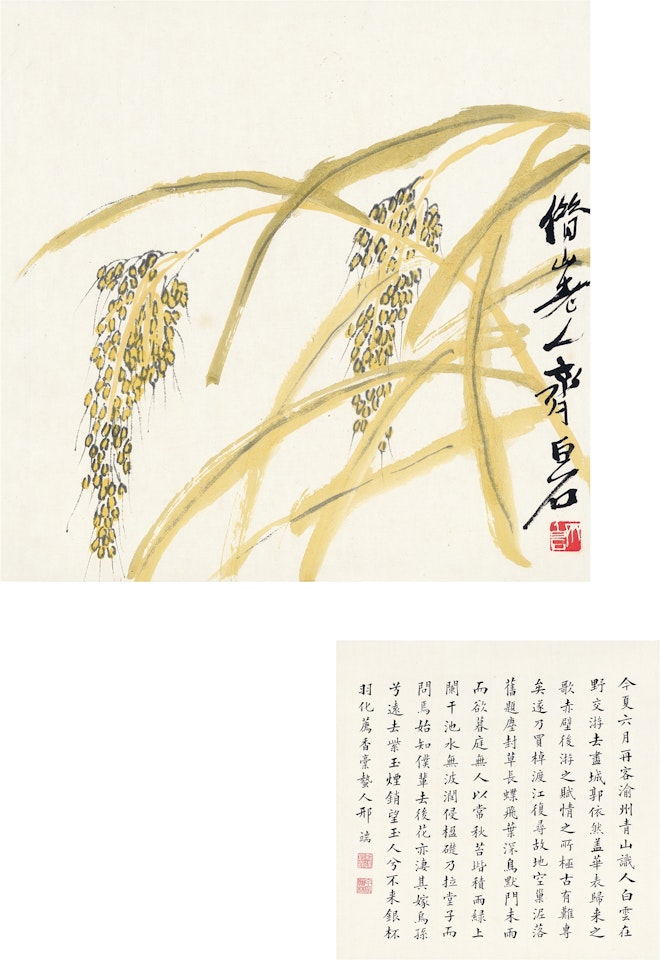 借山老人齊白石
今夏六月再客渝州青山識人白雲在
野交游去盡城郭依然蓋華表歸來之
歌赤壁後游之賦情之所極古有難專
矣遂乃買棹渡江復尋故地空巢泥落
舊題塵封草長蝶飛葉深鳥默門未雨
而欲暮庭無人以常秋苔堦積雨綠上
闌干池水無波潤侵楹礎乃拉堂子而
問焉始知僕輩去後花亦淒其嫁烏孫
兮遠去紫玉煙銷望玉人兮不來銀杯
羽化薦香橐蟄人邢端